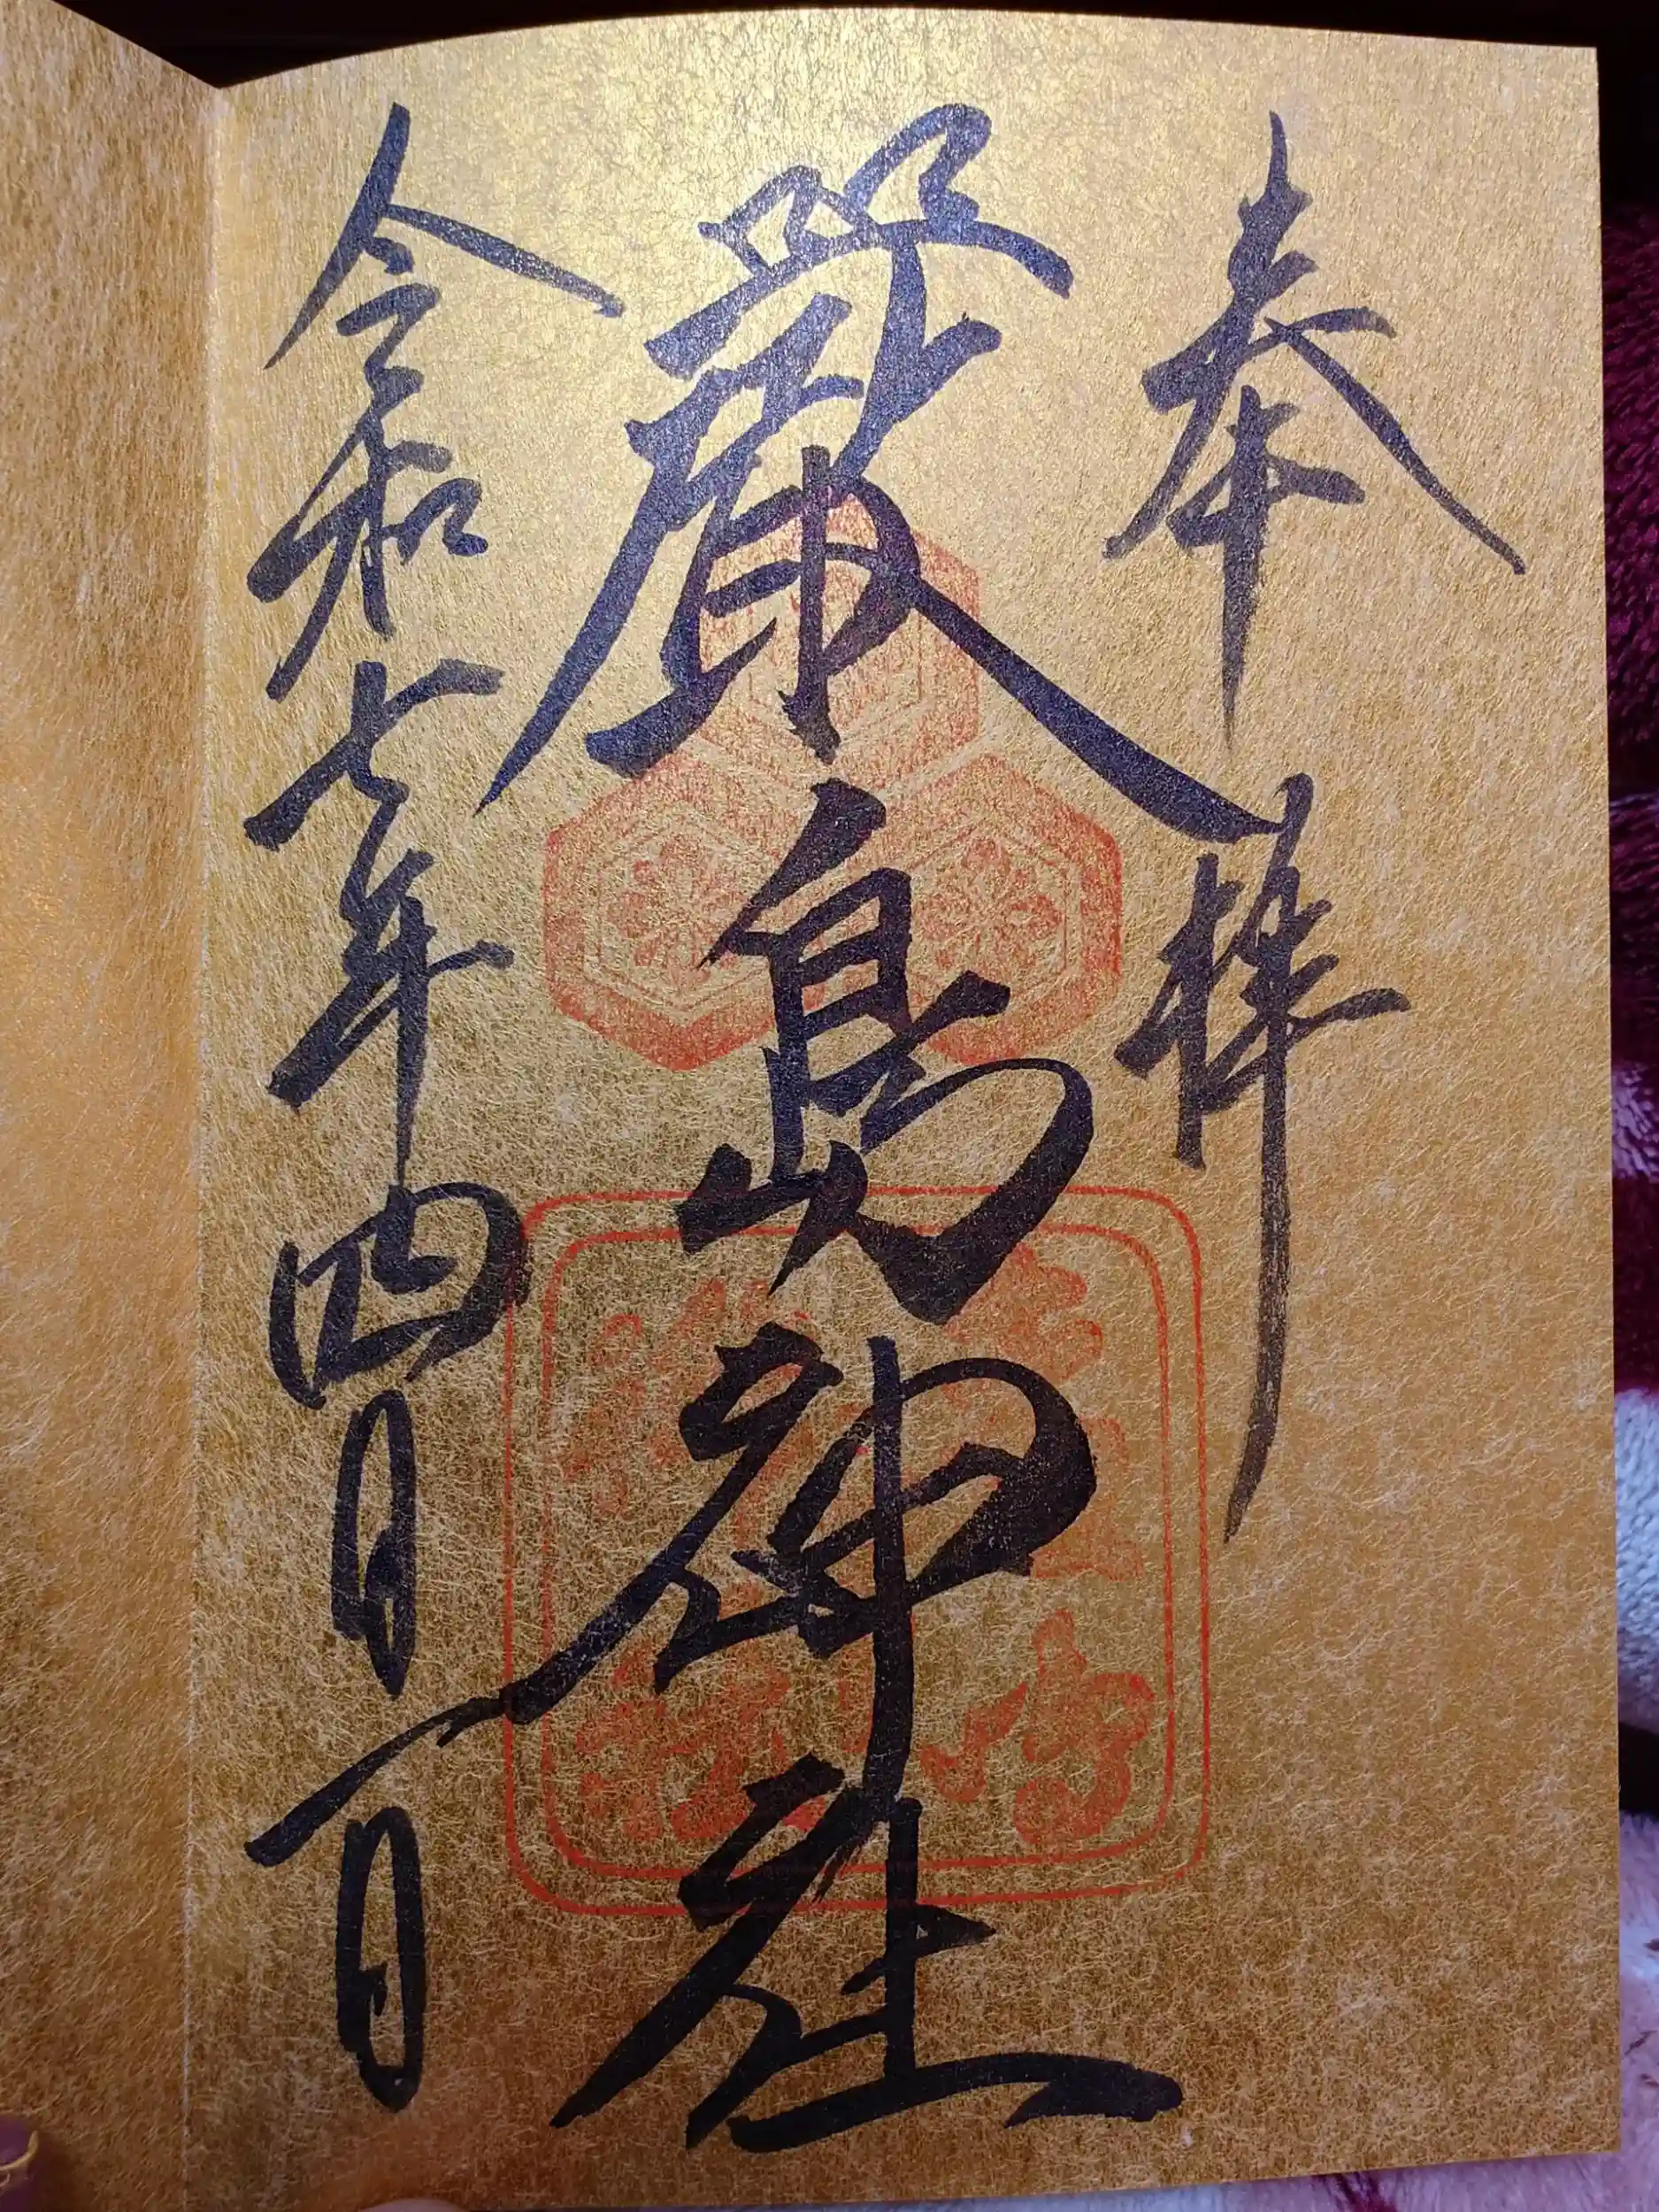 奉拝
嚴島神社
令和七年四月一日